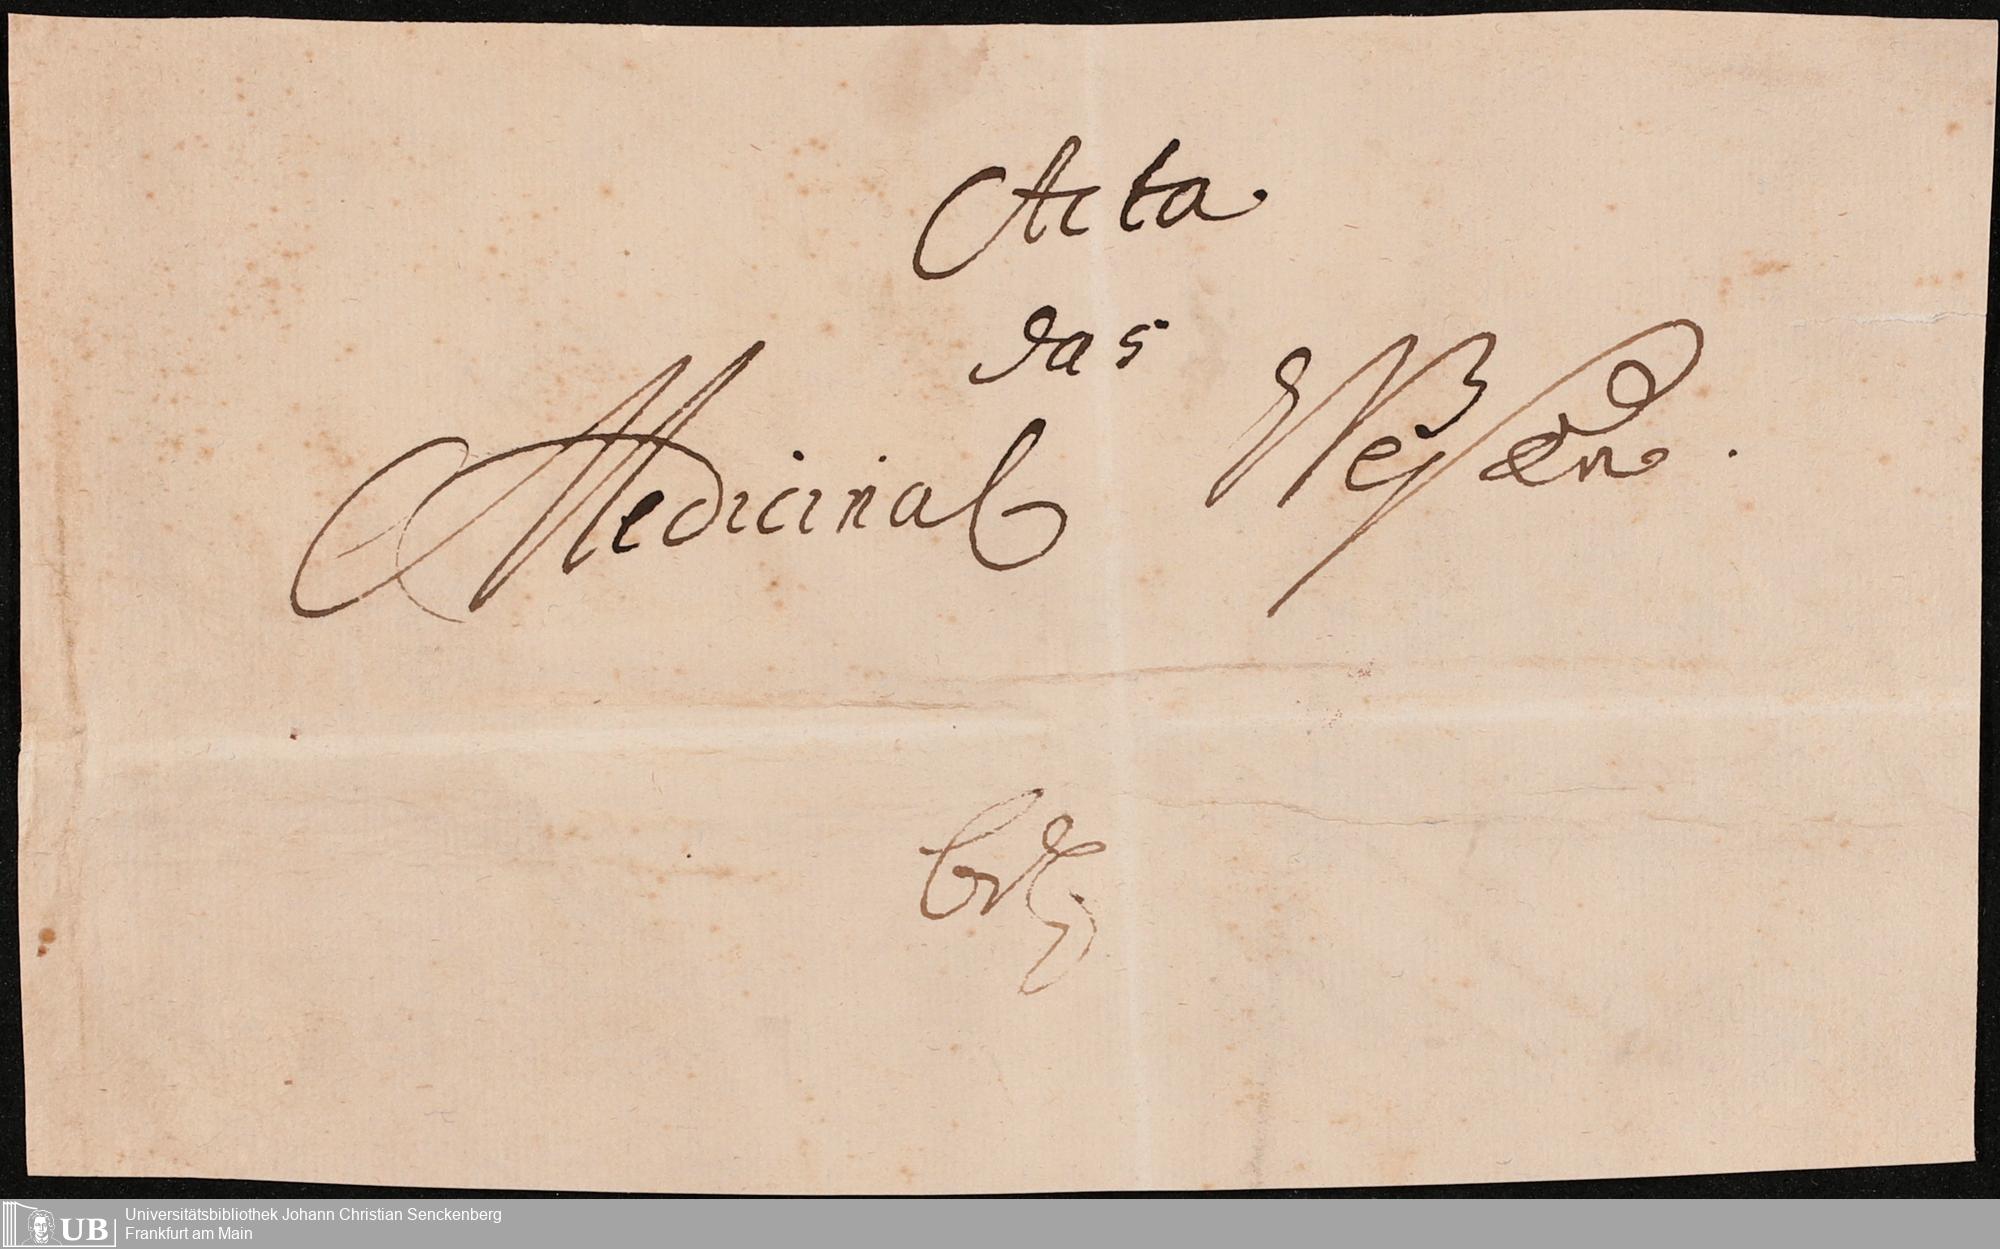 Acta
das
Medicinal Wesen.
UB
Universitätsbibliothek Johann Christian Senckenberg
Frankfurt am Main